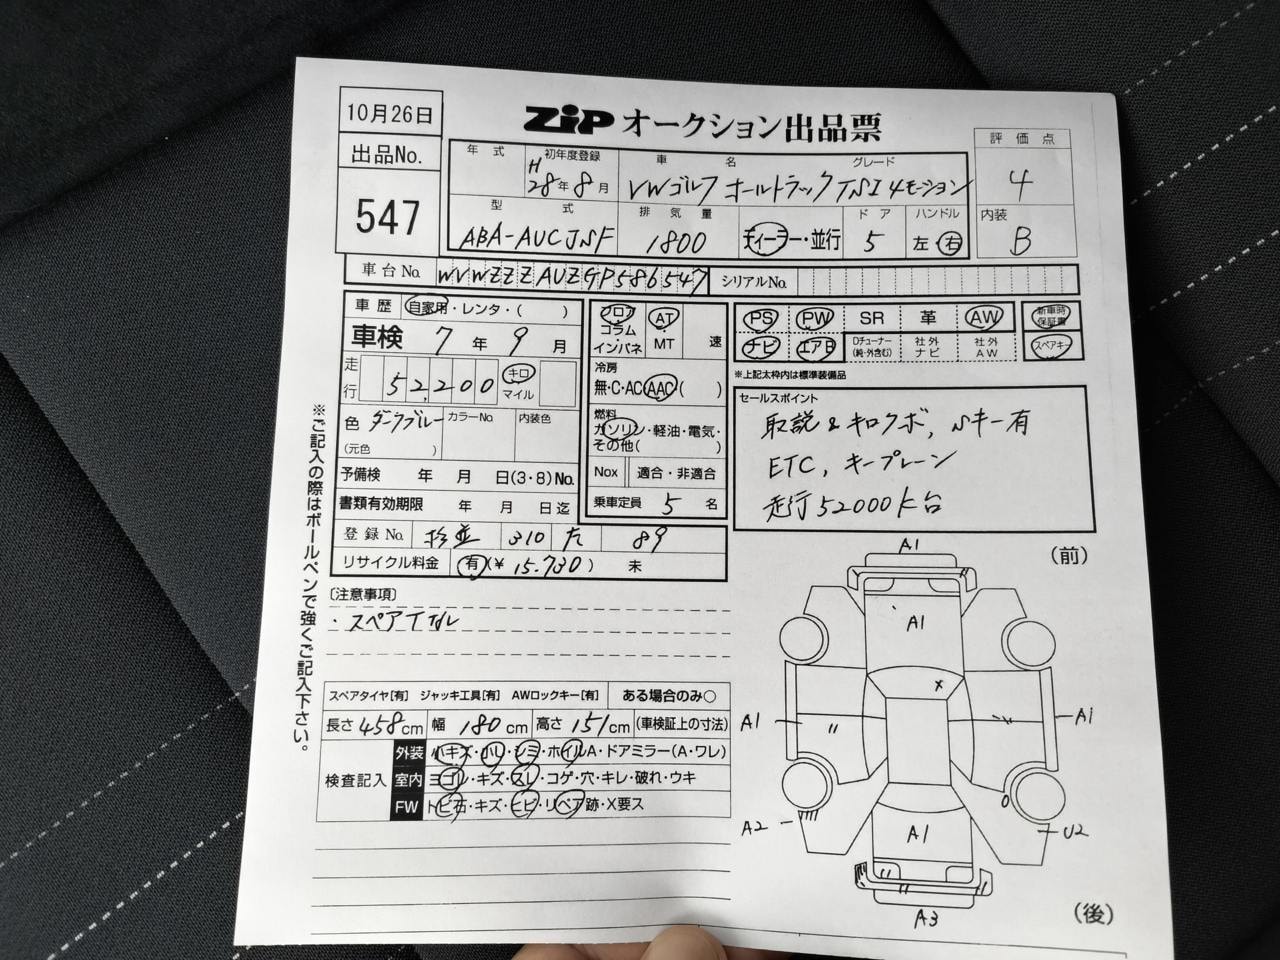 10月26日
ZIP オークション出品票
出品No.
547
年式
初年度登録
H
28年8月
車名
グレード
VWゴルフ オールトラックTSI4モーション
評価点
4
型式
ABA-AUCJSF
排気量
1800
ディーラー・並行
ドア
5
ハンドル
左 右
内装
B
車台No.
WVWZZZAUZGP586547
シリアルNo.
車歴
自家用・レンタ・( )
車検 7年9月
走行
52,200
キロ
マイル
色
ダークブルー
(元色 )
カラーNo.
内装色
予備検 年 月 日(3・8)No.
書類有効期限 年 月 日迄
登録No. 杉並 310 た 89
リサイクル料金 有(¥15.730) 未
フロア
コラム
インパネ
AT・
・MT
速
冷房
無・C・AC・AAC( )
燃料
ガソリン・軽油・電気・
その他( )
Nox 適合・非適合
乗車定員 5 名
PS PW SR 革 AW
新車時
保証書
ナビ エアB
Dチューナー
(純・外含む)
社外
ナビ
社外
AW
スペアキー
※上記太枠内は標準装備品
セールスポイント
取説&キロクボ, Sキー有
ETC, キープレーン
走行52000K台
※ご記入の際はボールペンで強くご記入下さい。
〔注意事項〕
・スペアTナル
スペアタイヤ[有] ジャッキ工具[有] AWロックキー[有] ある場合のみ○
長さ458cm 幅180cm 高さ151cm (車検証上の寸法)
検査記入
外装 小キズ・凹・シミ・ホイルA・ドアミラー(A・ワレ)
室内 ヨゴレ・キズ・スレ・コゲ・穴・キレ・破れ・ウキ
FW トビ石・キズ・ヒビ・リペア跡・X要ス
(前)
A1
A1
A1
A1
A2
U2
A1
A3
(後)